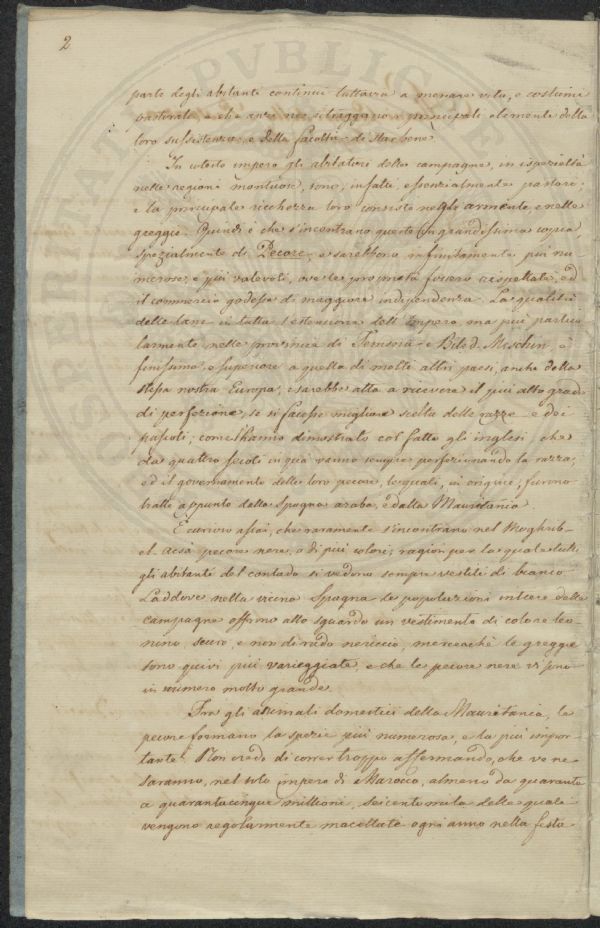 2
parte degli abitanti continui tuttavia a menare vita, e costumi
pastorali, e che anzi ne ritraggano i principali elementi della
loro sussistenza, e della facoltà di star bene.
In cotesto impero gli abitatori delle campagne, in ispezieltà
nelle regioni montuose, sono, infatti, essenzialmente pastori;
e la principale ricchezza loro consiste negli armenti, e nelle
greggie. Quindi è che s'incontrano queste in grandissima copia,
spezialmente di Pecore, e sarebbono infinitamente più nu-
merose, e più valevoli, ove le proprietà fossero rispettate, ed
il commercio godesse di maggiore indipendenza. La qualità
delle lane in tutta l'estensione dell'Impero, ma più partico-
larmente nelle provincie di Temsena e Beled. Meschin, è
finissima, e superiore a quella di molti altri paesi, anche della
stessa nostra Europa, e sarebbe atta a ricevere il più alto grado
di perfezione, se si facesse migliore scelta delle razze e dei
pascoli; com'hanno dimostrato col fatto gli inglesi, che
da quattro secoli in quà vanno sempre perfezionando la razza
ed il governamento delle loro pecore, le quali, in origine, furono
tratte appunto dalla Spagna araba, e dalla Mauritania.
È curioso assai, che raramente s'incontrano nel Moghrib-
el-acsà pecore nere, o di più colori; ragion per la quale tutti
gli abitanti del contado si vedono sempre vestiti di bianco
Laddove nella vicina Spagna le popolazioni intere delle
campagne offrono allo sguardo un vestimento di colore leo-
nino, scuro, e non di rado nericcio, mercecchè le greggie
sono quivi più varieggiate, e che le pecore nere vi sono
in numero molto grande.
Fra gli animali domestici della Mauritania, le
pecore formano la spezie più numerosa, e la più impor-
tante. Non credo di correr troppo affermando, che ve ne
saranno, nel solo impero di Marocco, almeno da quaranta
a quarantacinque millioni, seicento mila delle quali
vengono regolarmente macellate ogni anno nella festa